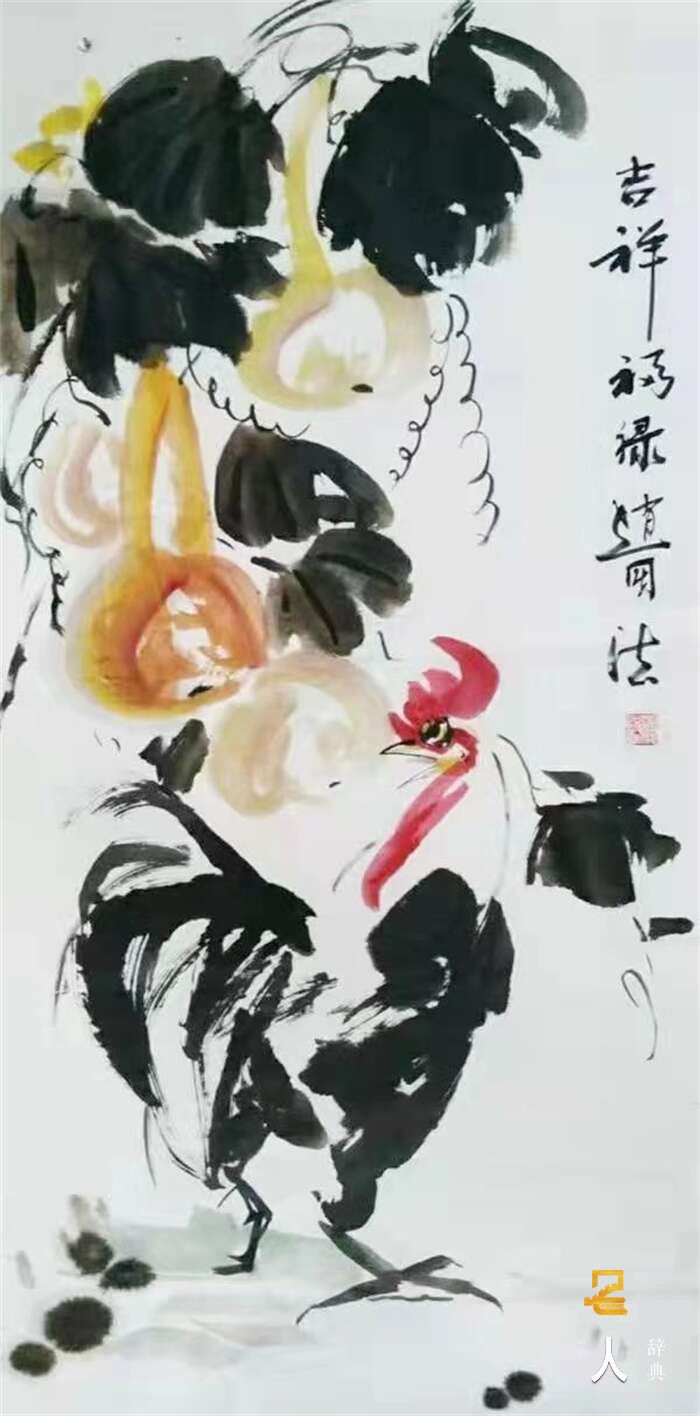 吉祥福禄趙法
名人
辞典